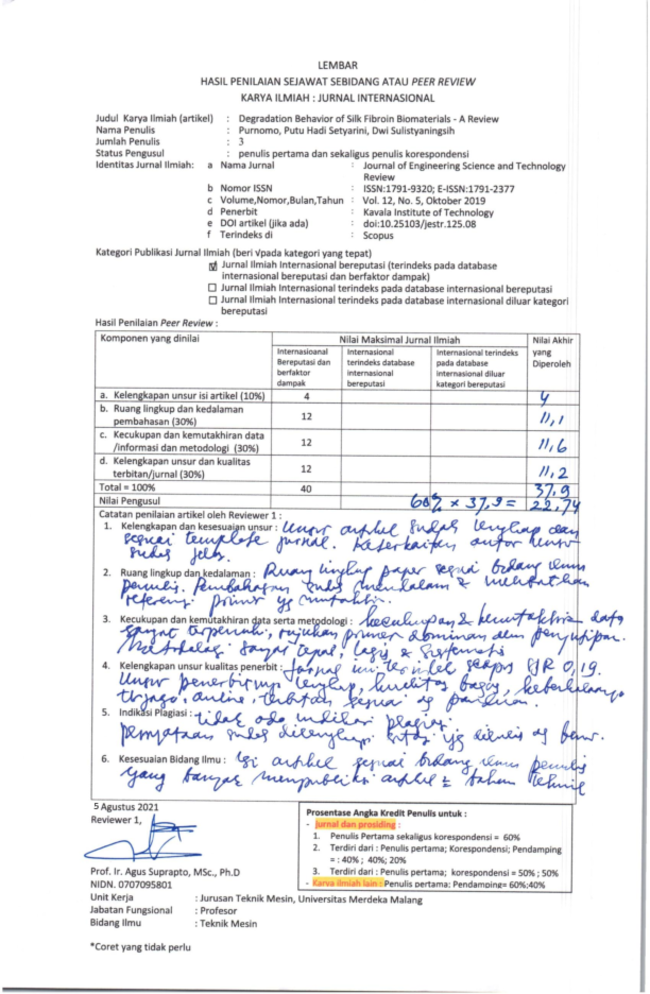 LEMBAR
HASIL PENILAIAN SEJAWAT SEBIDANG ATAU PEER REVIEW
KARYA ILMIAH : JURNAL INTERNASIONAL
Judul Karya Ilmiah (artikel) : Degradation Behavior of Silk Fibroin Biomaterials - A Review
Nama Penulis : Purnomo, Putu Hadi Setyarini, Dwi Sulistyaningsih
Jumlah Penulis : 3
Status Pengusul : penulis pertama dan sekaligus penulis korespondensi
Identitas Jurnal Ilmiah: a Nama Jurnal : Journal of Engineering Science and Technology
Review
b Nomor ISSN : ISSN:1791-9320; E-ISSN:1791-2377
c Volume,Nomor,Bulan,Tahun : Vol. 12, No. 5, Oktober 2019
d Penerbit : Kavala Institute of Technology
e DOI artikel (jika ada) : doi:10.25103/jestr.125.08
f Terindeks di : Scopus
Kategori Publikasi Jurnal Ilmiah (beri √pada kategori yang tepat)
☑ Jurnal Ilmiah Internasional bereputasi (terindeks pada database
internasional bereputasi dan berfaktor dampak)
☐ Jurnal Ilmiah Internasional terindeks pada database internasional bereputasi
☐ Jurnal Ilmiah Internasional terindeks pada database internasional diluar kategori
bereputasi
Hasil Penilaian Peer Review :
Komponen yang dinilai Nilai Maksimal Jurnal Ilmiah Nilai Akhir
yang
Diperoleh
Internasioanal
Bereputasi dan
berfaktor
dampak
Internasional
terindeks database
internasional
bereputasi
Internasional terindeks
pada database
internasional diluar
kategori bereputasi
a. Kelengkapan unsur isi artikel (10%) 4 4
b. Ruang lingkup dan kedalaman
pembahasan (30%) 12 11,1
c. Kecukupan dan kemutakhiran data
/informasi dan metodologi (30%) 12 11,6
d. Kelengkapan unsur dan kualitas
terbitan/jurnal (30%) 12 11,2
Total = 100% 40 37,9
Nilai Pengusul 60% x 37,9 = 22,74
Catatan penilaian artikel oleh Reviewer 1 :
1. Kelengkapan dan kesesuaian unsur : Unsur artikel sudah lengkap dan
sesuai template jurnal. Keterkaitan antar unsur
sudah jelas.
2. Ruang lingkup dan kedalaman : Ruang lingkup paper sesuai bidang ilmu
penulis. Pembahasan sudah mendalam & melibatkan
referensi primer yg mutakhir.
3. Kecukupan dan kemutakhiran data serta metodologi : kecukupan & kemutakhiran data
sangat terpenuhi, rujukan primer dominan dlm pengutipan.
Metodologi sangat tepat, logis & sistematis
4. Kelengkapan unsur kualitas penerbit : Jurnal scopus SJR 0,19.
Unsur penerbitnya lengkap, kualitas bagus,
online, terbitan sesuai dg panduan.
5. Indikasi Plagiasi : tidak ada indikasi plagiasi
pernyataan sudah dilengkapi yg ditulis dg benar.
6. Kesesuaian Bidang Ilmu : Isi artikel sesuai bidang ilmu penulis
yang banyak artikel bahan teknik
5 Agustus 2021
Reviewer 1,
Prof. Ir. Agus Suprapto, MSc., Ph.D
NIDN. 0707095801
Unit Kerja : Jurusan Teknik Mesin, Universitas Merdeka Malang
Jabatan Fungsional : Profesor
Bidang Ilmu : Teknik Mesin
Prosentase Angka Kredit Penulis untuk :
- Jurnal dan prosiding :
1. Penulis Pertama sekaligus korespondensi = 60%
2. Terdiri dari : Penulis pertama; Korespondensi; Pendamping
= : 40% ; 40%; 20%
3. Terdiri dari : Penulis pertama; korespondensi = 50% ; 50%
- Karya ilmiah lain : Penulis pertama: Pendamping= 60%;40%
*Coret yang tidak perlu